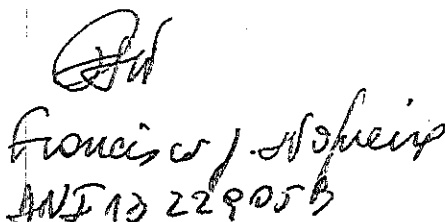 Francisco J. Nogueira
DNI 1322905B